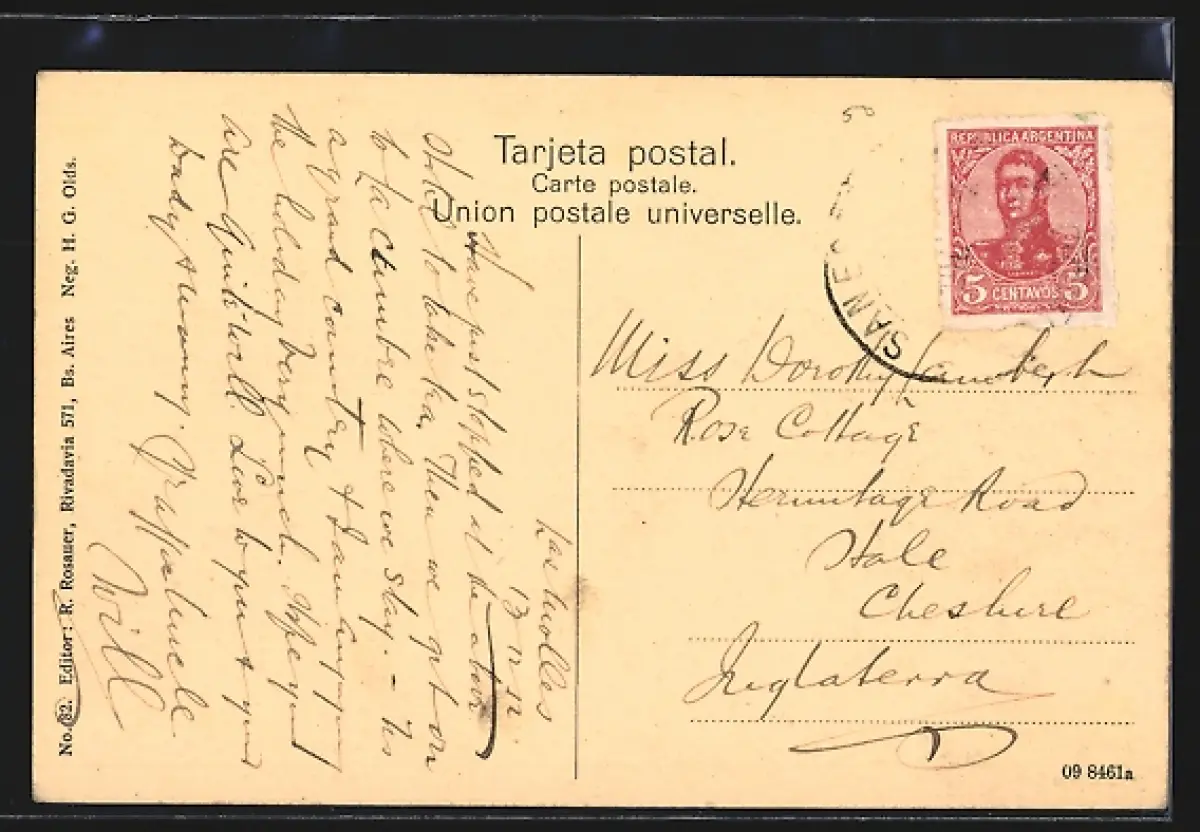 Tarjeta postal.
Carte postale.
Union postale universelle.
REPUBLICA ARGENTINA
5 CENTAVOS 5
SAN
Miss Dorothy
Rose Cottage
Hermitage Road
Hale
Cheshire
Inglaterra
09 8461a
No. 82. Editor: R. Rosauer, Rivadavia 571, Bs. Aires Neg. H. G. Olds.
13
Have just stopped at the above
to take tea, then we get on
to La Cumbre where we stay. - It's
a grand country & I am enjoying
the holiday very much. Hope you
are quite well. Love to you & your
Dady & Mammy.
Will